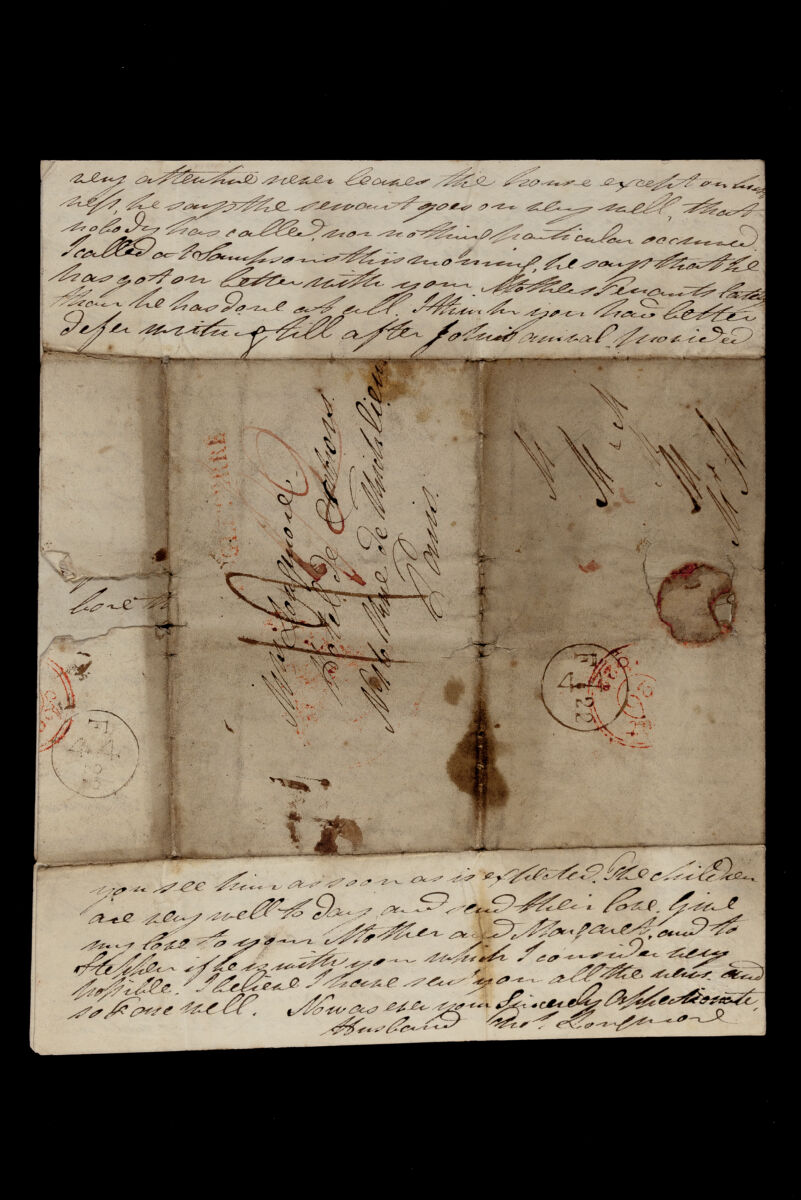 very attentive never leaves the house except on busi
ness, he says the servant goes on very well, that
nobody has called, nor nothing particular occurred
I called at Sampsons this morning, he says that he
has got on better with your Mothers Tenants lately
than he has done at all. I think you had better
defer writing till after John's arrival provided
Mrs Longmore
Hotel de
No 16 Rue de Richlieu
Paris.
ANGLETERRE
bore th
M
M & M
M
Mr M
F
44
22
F
44
you see him as soon as is expected. The children
are very well to day and send their love. Give
my love to your Mother and Margaret. and to
Stephen if he is with you which I consider very
possible. I believe I have sent you all the news and
so Fare well. Now as ever your Sincerely Affectionate
Husband Thos. Longmore